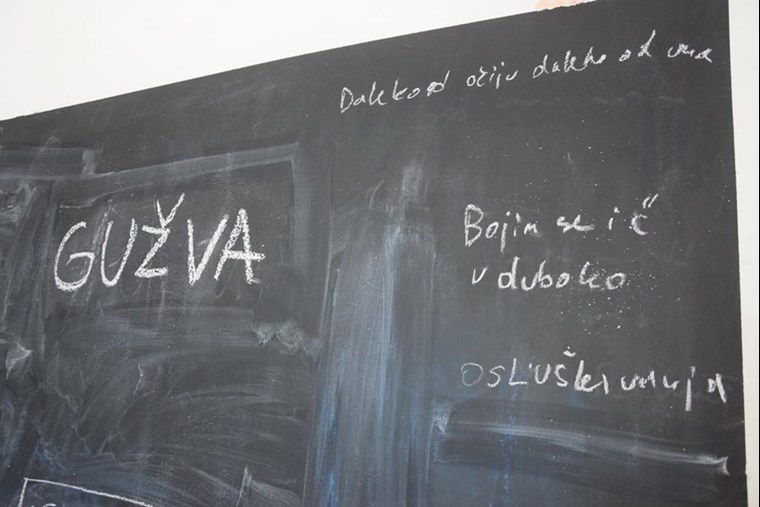 Daleko od očiju daleko od uma
GUŽVA
Bojim se i ć
u duboko
OSLUŠKIVANJA